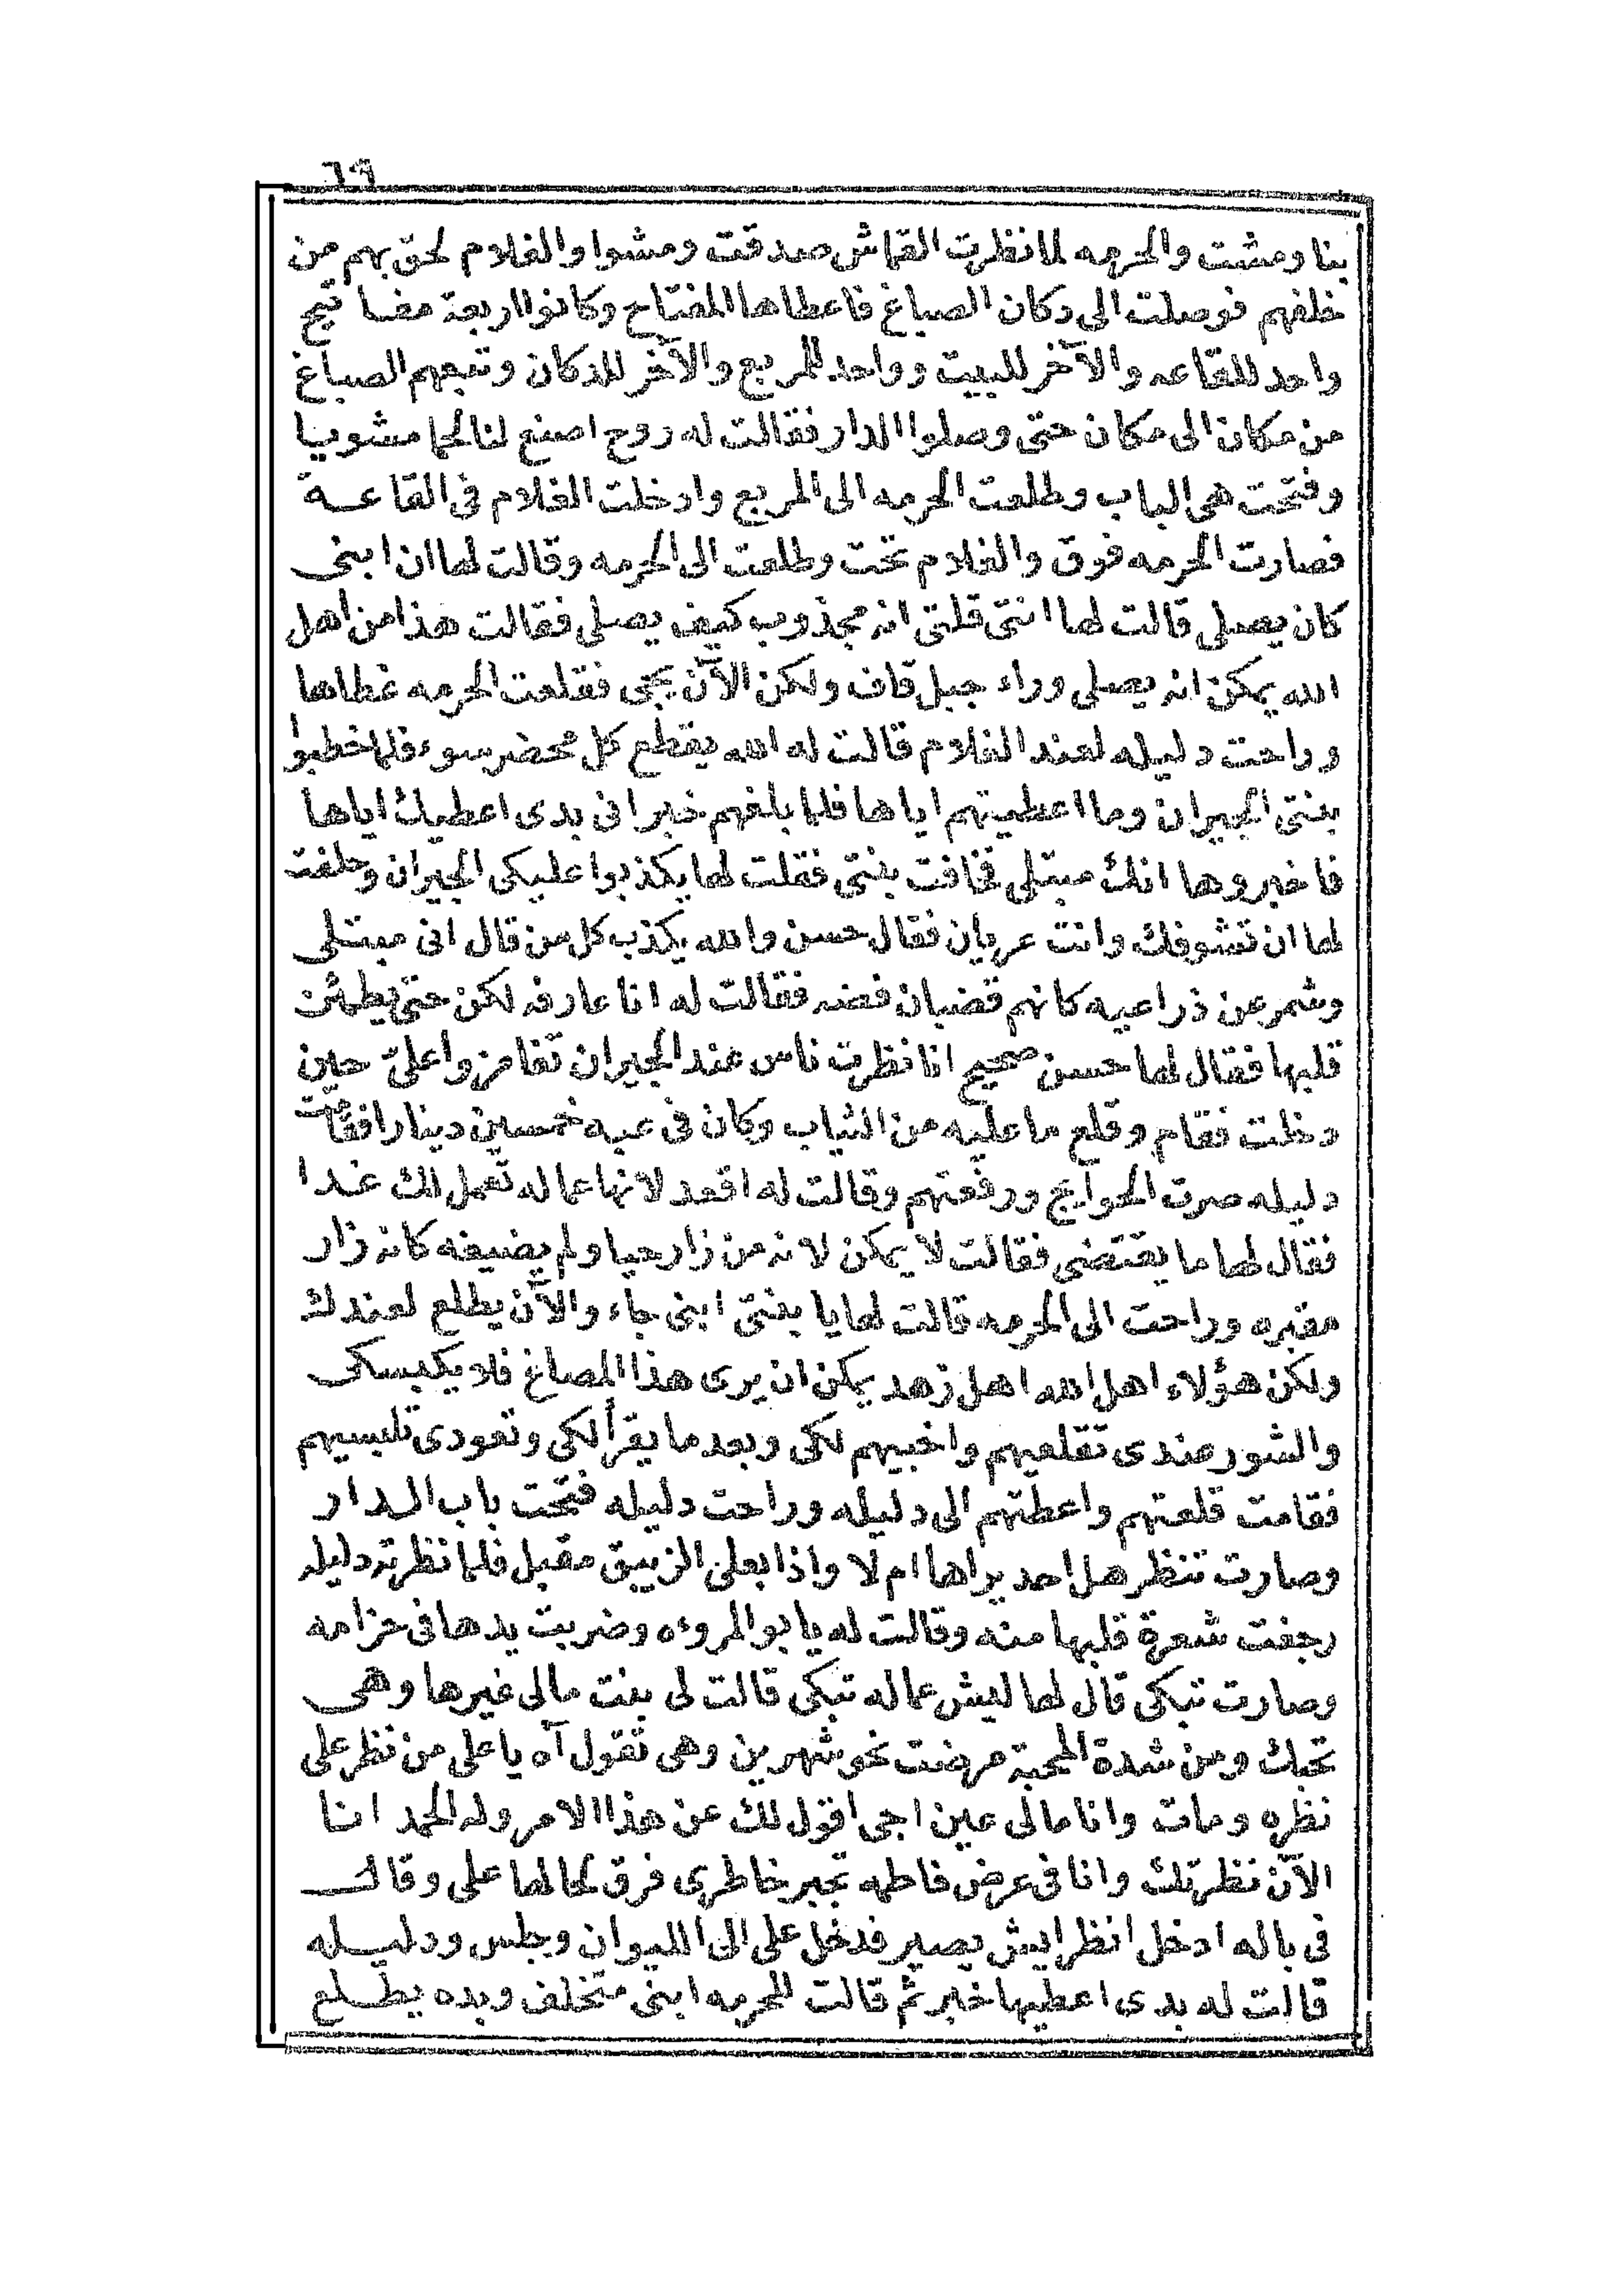 ٦٩
بنا ومشت والحرمه لما نظرت القماش صدقت ومشوا والغلام لحق بهم من
خلفهم فوصلت الى دكان الصباغ فاعطاها المفتاح وكانوا اربعة مفاتيح
واحد للقاعه والآخر للبيت وواحد للمربع والآخر للدكان وتبعهم الصباغ
من مكان الى مكان حتى وصلوا الدار فقالت له روح اصنع لنا لحما مشويا
وفتحت هى الباب وطلعت الحرمه الى المربع وادخلت الغلام فى القاعة
فصارت الحرمه فوق والغلام تحت وطلعت الى الحرمه وقالت لها ان ابنى
كان يصلى قالت لها انتى قلتى انه مجذوب كيف يصلى فقالت هذا من اهل
الله يمكن انه يصلى وراء جبل قاف ولكن الآن يجى فقلعت الحرمه غطاها
وراحت دليله لعند الغلام قالت له الله يقطع كل محضر سوء فلما خطبوا
بنتى الجيران وما اعطيتهم اياها فلما بلغهم خبر انى بدى اعطيك اياها
فاخبروها انك مبتلى فخافت بنتى فقلت لها يكذبوا عليكى الجيران وحلفت
لها ان تشوفك وانت عريان فقال حسن والله يكذب كل من قال انى مبتلى
وشمر عن ذراعيه كانهم قضبان فضه فقالت له انا عارفه لكن حتى يطمئن
قلبها فقال لها حسن صحيح انا نظرت ناس عند الجيران تغامزوا علىّ حين
دخلت فقام وقلع ما عليه من الثياب وكان فى عبه خمسين دينارا فقامت
دليله صرت الحوايج ورفعتهم وقالت له اقعد لانها عماله تعمل لك غدا
فقال لها ما يقتضى فقالت لا يمكن لانه من زار حيا ولم يضيفه كانه زار
مقبره وراحت الى الحرمه قالت لها يا بنتى ابنى جاء والآن يطلع لعندك
ولكن هؤلاء اهل الله اهل زهد يمكن ان يرى هذا المصاغ فلا يكبسكى
والشور عندى تقلعيهم واخبيهم لكى وبعد ما يقرأ لكى وتعودى تلبسيهم
فقامت قلعتهم واعطتهم الى دليله وراحت دليله فتحت باب الدار
وصارت تنظر هل احد يراها ام لا واذا بعلى الزيبق مقبل فلما نظرته دليله
رجفت شعرة قلبها منه وقالت له يا بو المروءه وضربت يدها فى حزامه
وصارت تبكى قال لها ليش عماله تبكى قالت لى بنت مالى غيرها وهى
تحبك ومن شدة المحبة مرضت نحو شهرين وهى تقول آه يا على من نظر على
نظره ومات وانا مالى عين اجى اقول لك عن هذا الامر وله الحمد انا
الآن نظرتك وانا فى عرض فاطمه تجبر خاطرى فرق لحالها على وقال
فى باله ادخل انظر ايش يصير فدخل على الى الليوان وجلس ودليله
قالت له بدى اعطيها خبر ثم قالت للحرمه ابنى متخلف وبده يطلع